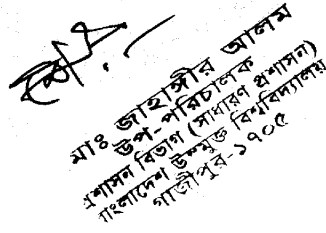 মোঃ জাহাঙ্গীর আলম
উপ-পরিচালক
প্রশাসন বিভাগ (সাধারণ প্রশাসন)
বাংলাদেশ উন্মুক্ত বিশ্ববিদ্যালয়
গাজীপুর-১৭০৫